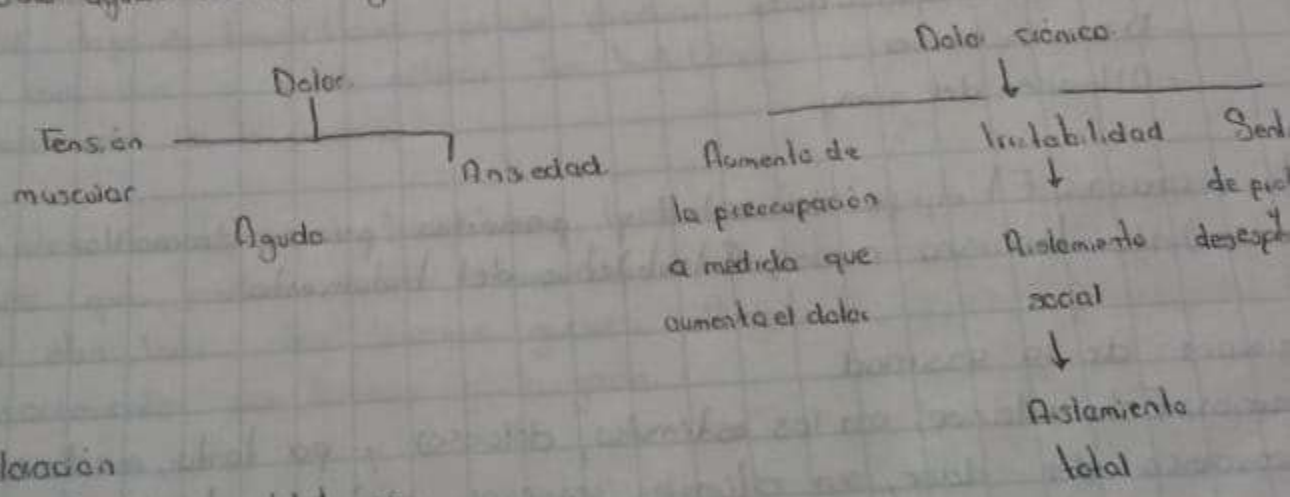 Dolor
Tensión
muscular
Ansedad
Agudo
Dolor crónico
Aumento de
la preocupación
a medida que
aumenta el dolor
Irritabilidad
Aislamiento
social
Aislamiento
total
Sent
de
y